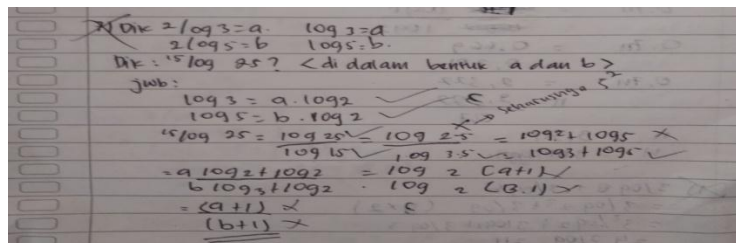 Dik 2log 3 = a. log 3 = a
2log 5 = b log 5 = b.
Dik : 15log 25? < di dalam bentuk a dan b >
jwb:
log 3 = a . log 2
log 5 = b . log 2
seharusnya 5²
15log 25 = log 25 / log 15 = log 2.5 / log 3.5 = log 2 + log 5 / log 3 + log 5
= a log 2 + log 2 / b log 3 + log 2 = log 2 (a+1) / log 2 (B.1)
= (a+1) / (b+1)